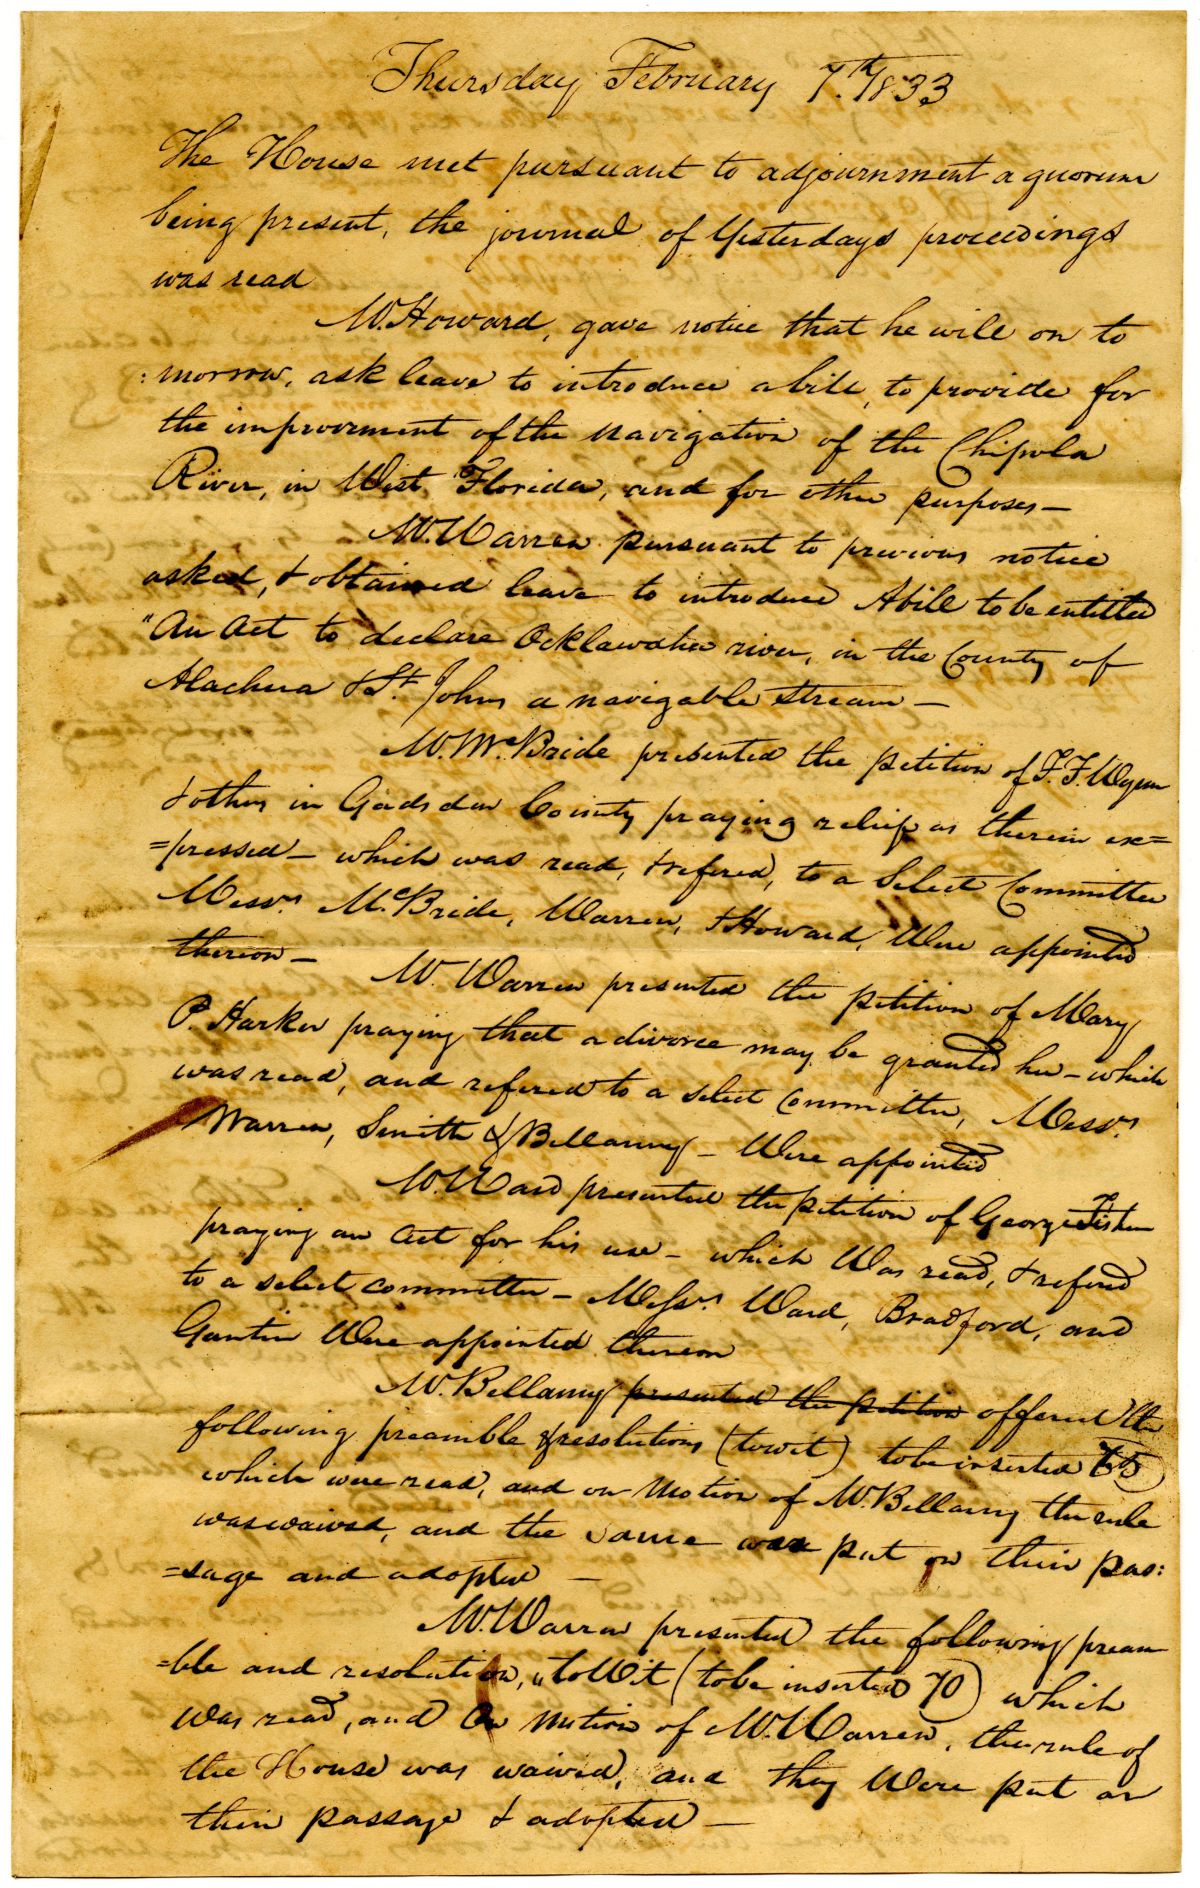 Thursday February 7.th 1833
The House met pursuant to adjournment a quorum
being present, the journal of Yesterdays proceedings
was read
Mr. Howard, gave notice that he will on to
:morrow, ask leave to introduce a bill, to provide for
the improvement of the navigation of the Chipola
River, in West Florida, and for other purposes—
Mr. Warren pursuant to previous notice
asked, & obtained leave to introduce A bill to be entitled
"An Act to declare Ocklawaha river, in the County of
Alachua & St. Johns a navigable Stream—
Mr. McBride presented the petition of F. Wynn
& others in Gadsden County praying relief as therein ex=
=pressed— which was read, & refered, to a Select Committee
Messrs. McBride, Warren, & Howard, Were appointed
thereon—
Mr. Warren presented the petition of Mary
P. Harker praying that a divorce may be granted her—which
was read, and refered to a select Committee, Messrs.
Warren, Smith & Bellamy— Were appointed
Mr. Ward presented the petition of George Fisher
praying an Act for his use— which Was read, & refered
to a select committee— Messrs. Ward, Bradford, and
Gautier Were appointed thereon
Mr. Bellamy presented the petition offered the
following preamble & resolutions (towit) to be inserted
which were read, and on Motion of Mr. Bellamy the rule
was waived, and the same was put on their pas:
=sage and adopted—
Mr. Warren presented the following pream
=ble and resolution, "to Wit (to be inserted 70) which
Was read, and On Motion of Mr. Warren, the rule of
the House was waived, and they Were put on
their passage & adopted—